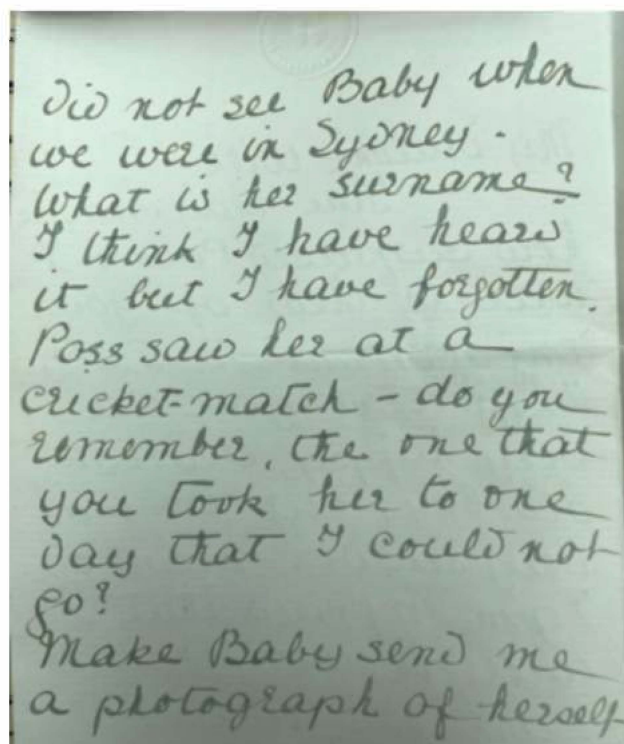 Did not see Baby when
we were in Sydney.
What is her surname?
I think I have heard
it but I have forgotten.
Poss saw her at a
cricket-match - do you
remember, the one that
you took her to one
day that I could not
go?
Make Baby send me
a photograph of herself